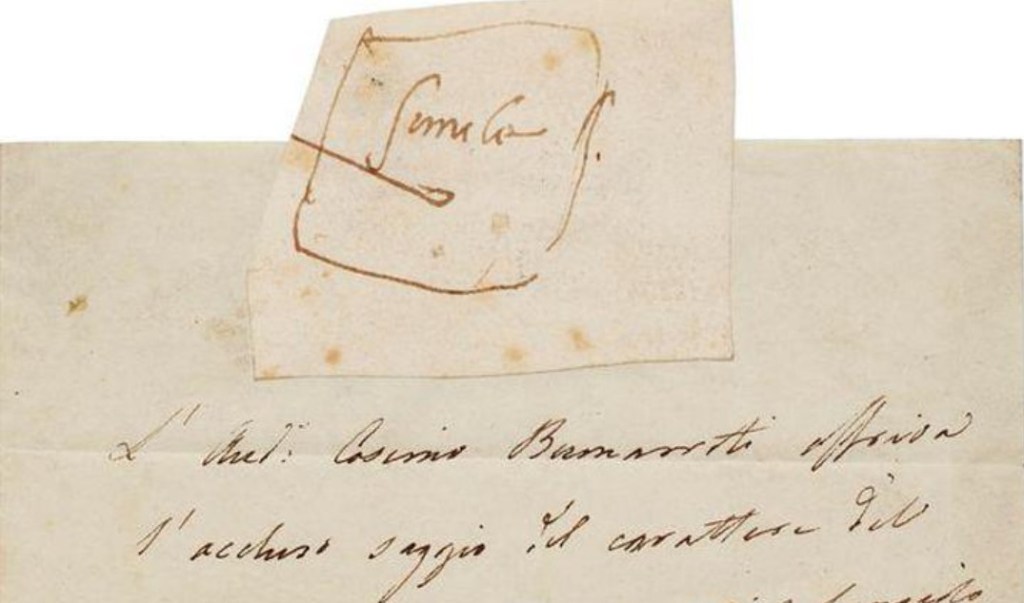 simile
L' Aud.: Cosimo Buonarroti offriva
l' accluso saggio del carattere del